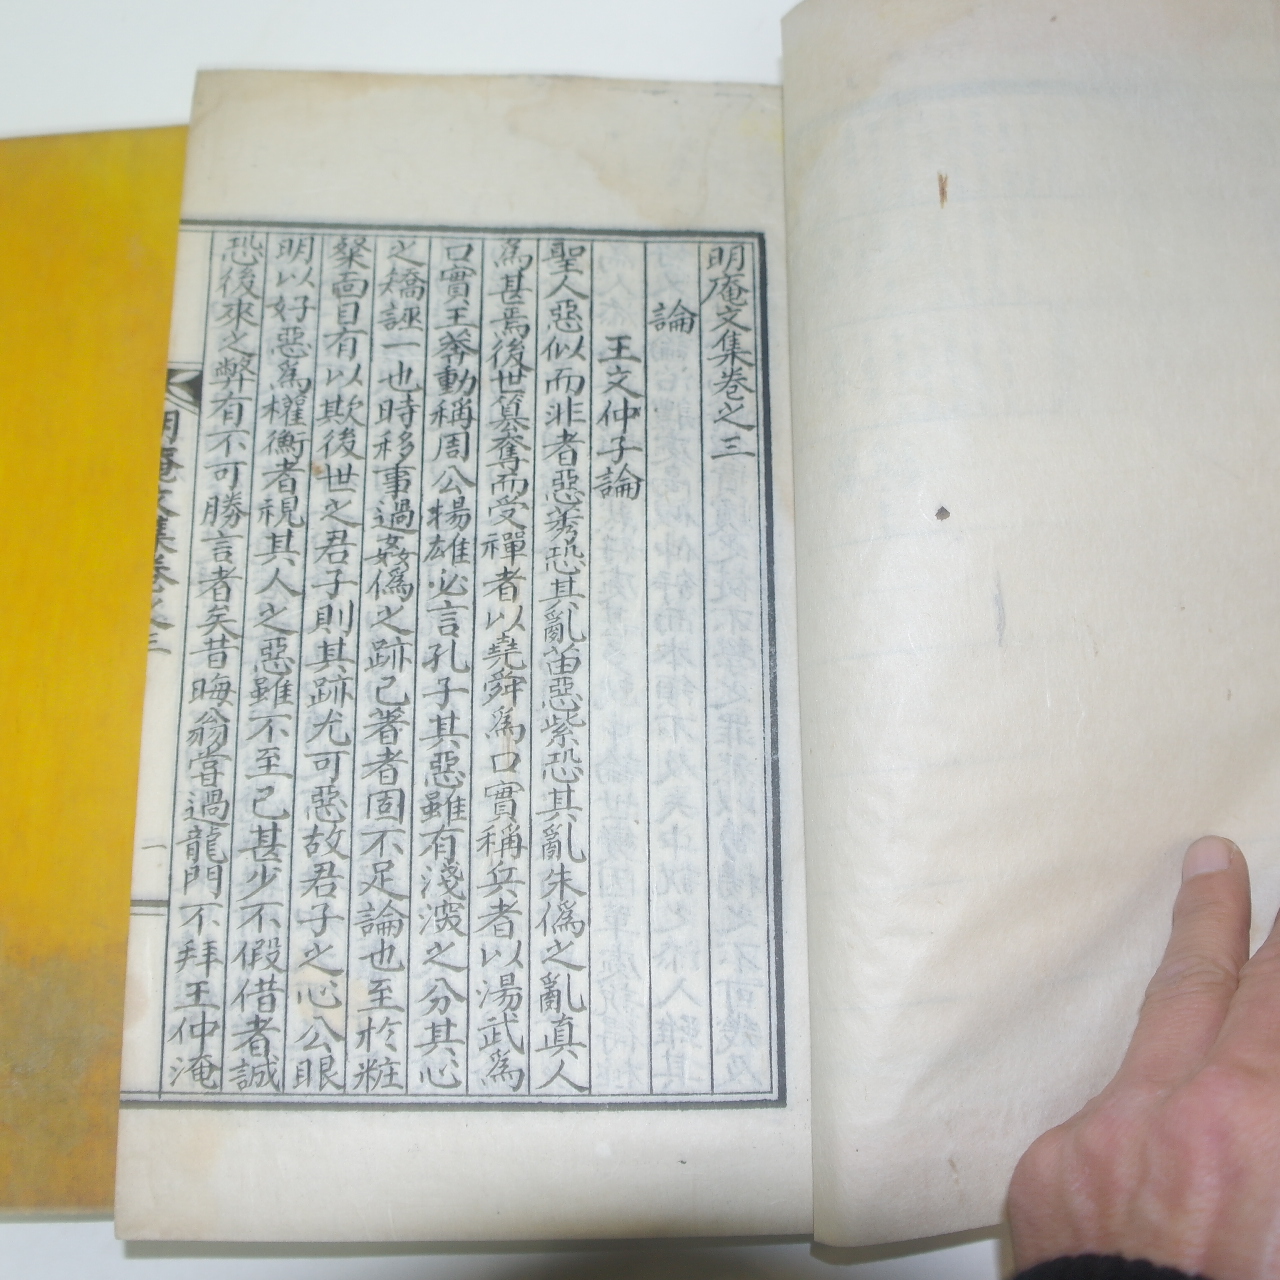 明庵文集卷之三
論
王文仲子論
聖人惡似而非者惡莠恐其亂苗惡紫恐其亂朱僞之亂真人
爲甚焉後世簒奪而受禪者以堯舜爲口實稱兵者以湯武爲
口實王莽動稱周公楊雄必言孔子其惡雖有淺深之分其心
之矯誣一也時移事過姦僞之跡已著者固不足論也至於粧
粲面目有以欺後世之君子則其跡尤可惡故君子之心公眼
明以好惡爲權衡者視其人之惡雖不至已甚少不假借者誠
恐後來之弊有不可勝言者矣昔晦翁嘗過龍門不拜王仲淹
明庵文集卷之三
一